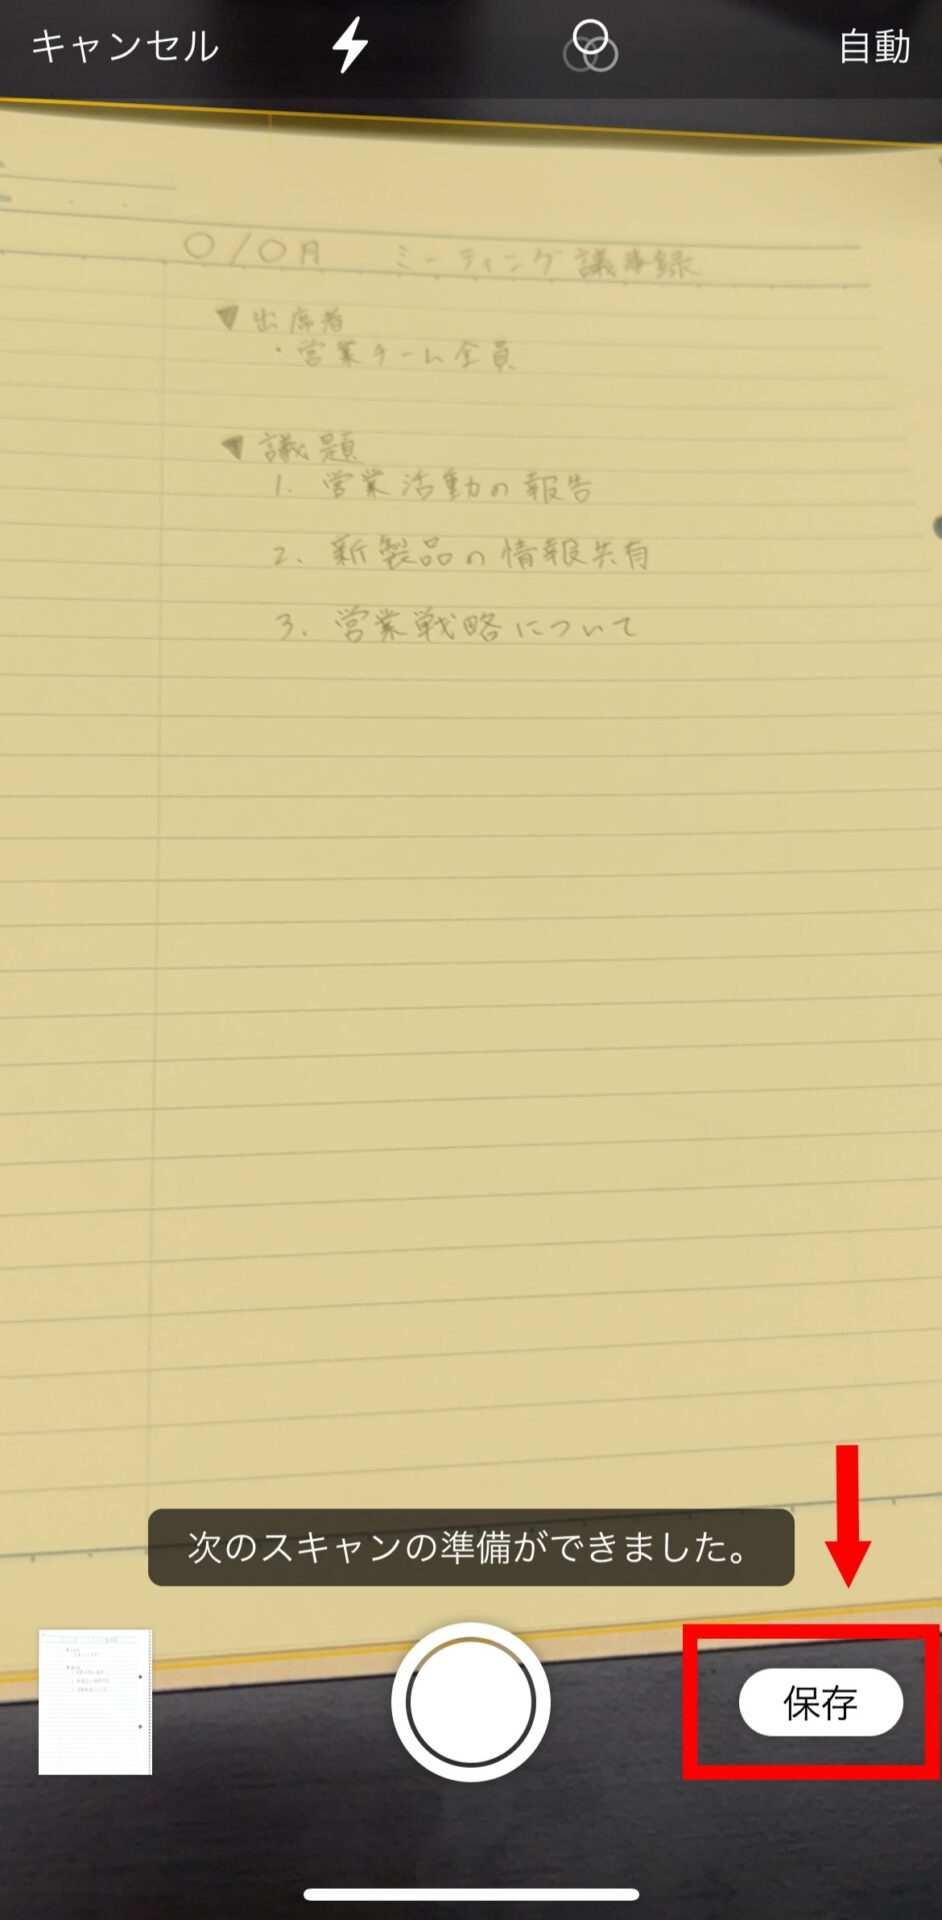 キャンセル 自動
〇/〇月 ミーティング議事録
▼出席者
・営業チーム全員
▼議題
1. 営業活動の報告
2. 新製品の情報共有
3. 営業戦略について
次のスキャンの準備ができました。
保存